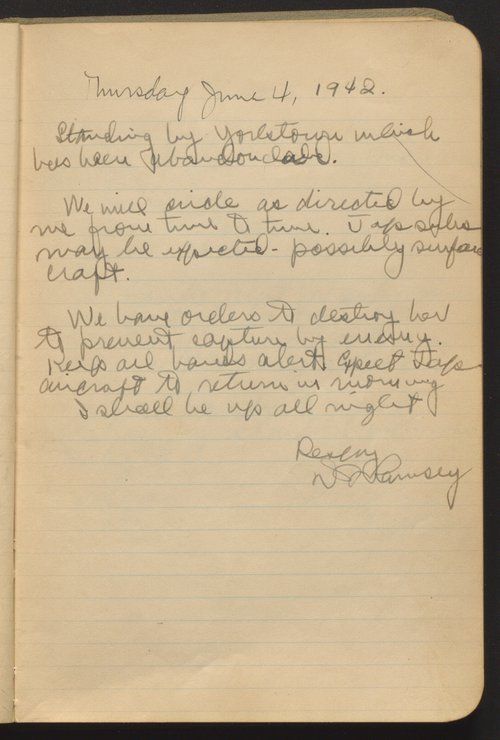 Thursday June 4, 1942.
Standing by Yorktown which
has been abandoned.
We will circle as directed by
me from time to time. Jap subs
may be expected - possibly surface
craft.
We have orders to destroy her
to prevent capture by enemy.
Keep all hands alert. Expect Jap
aircraft to return in morning
I shall be up all night
Ramsey